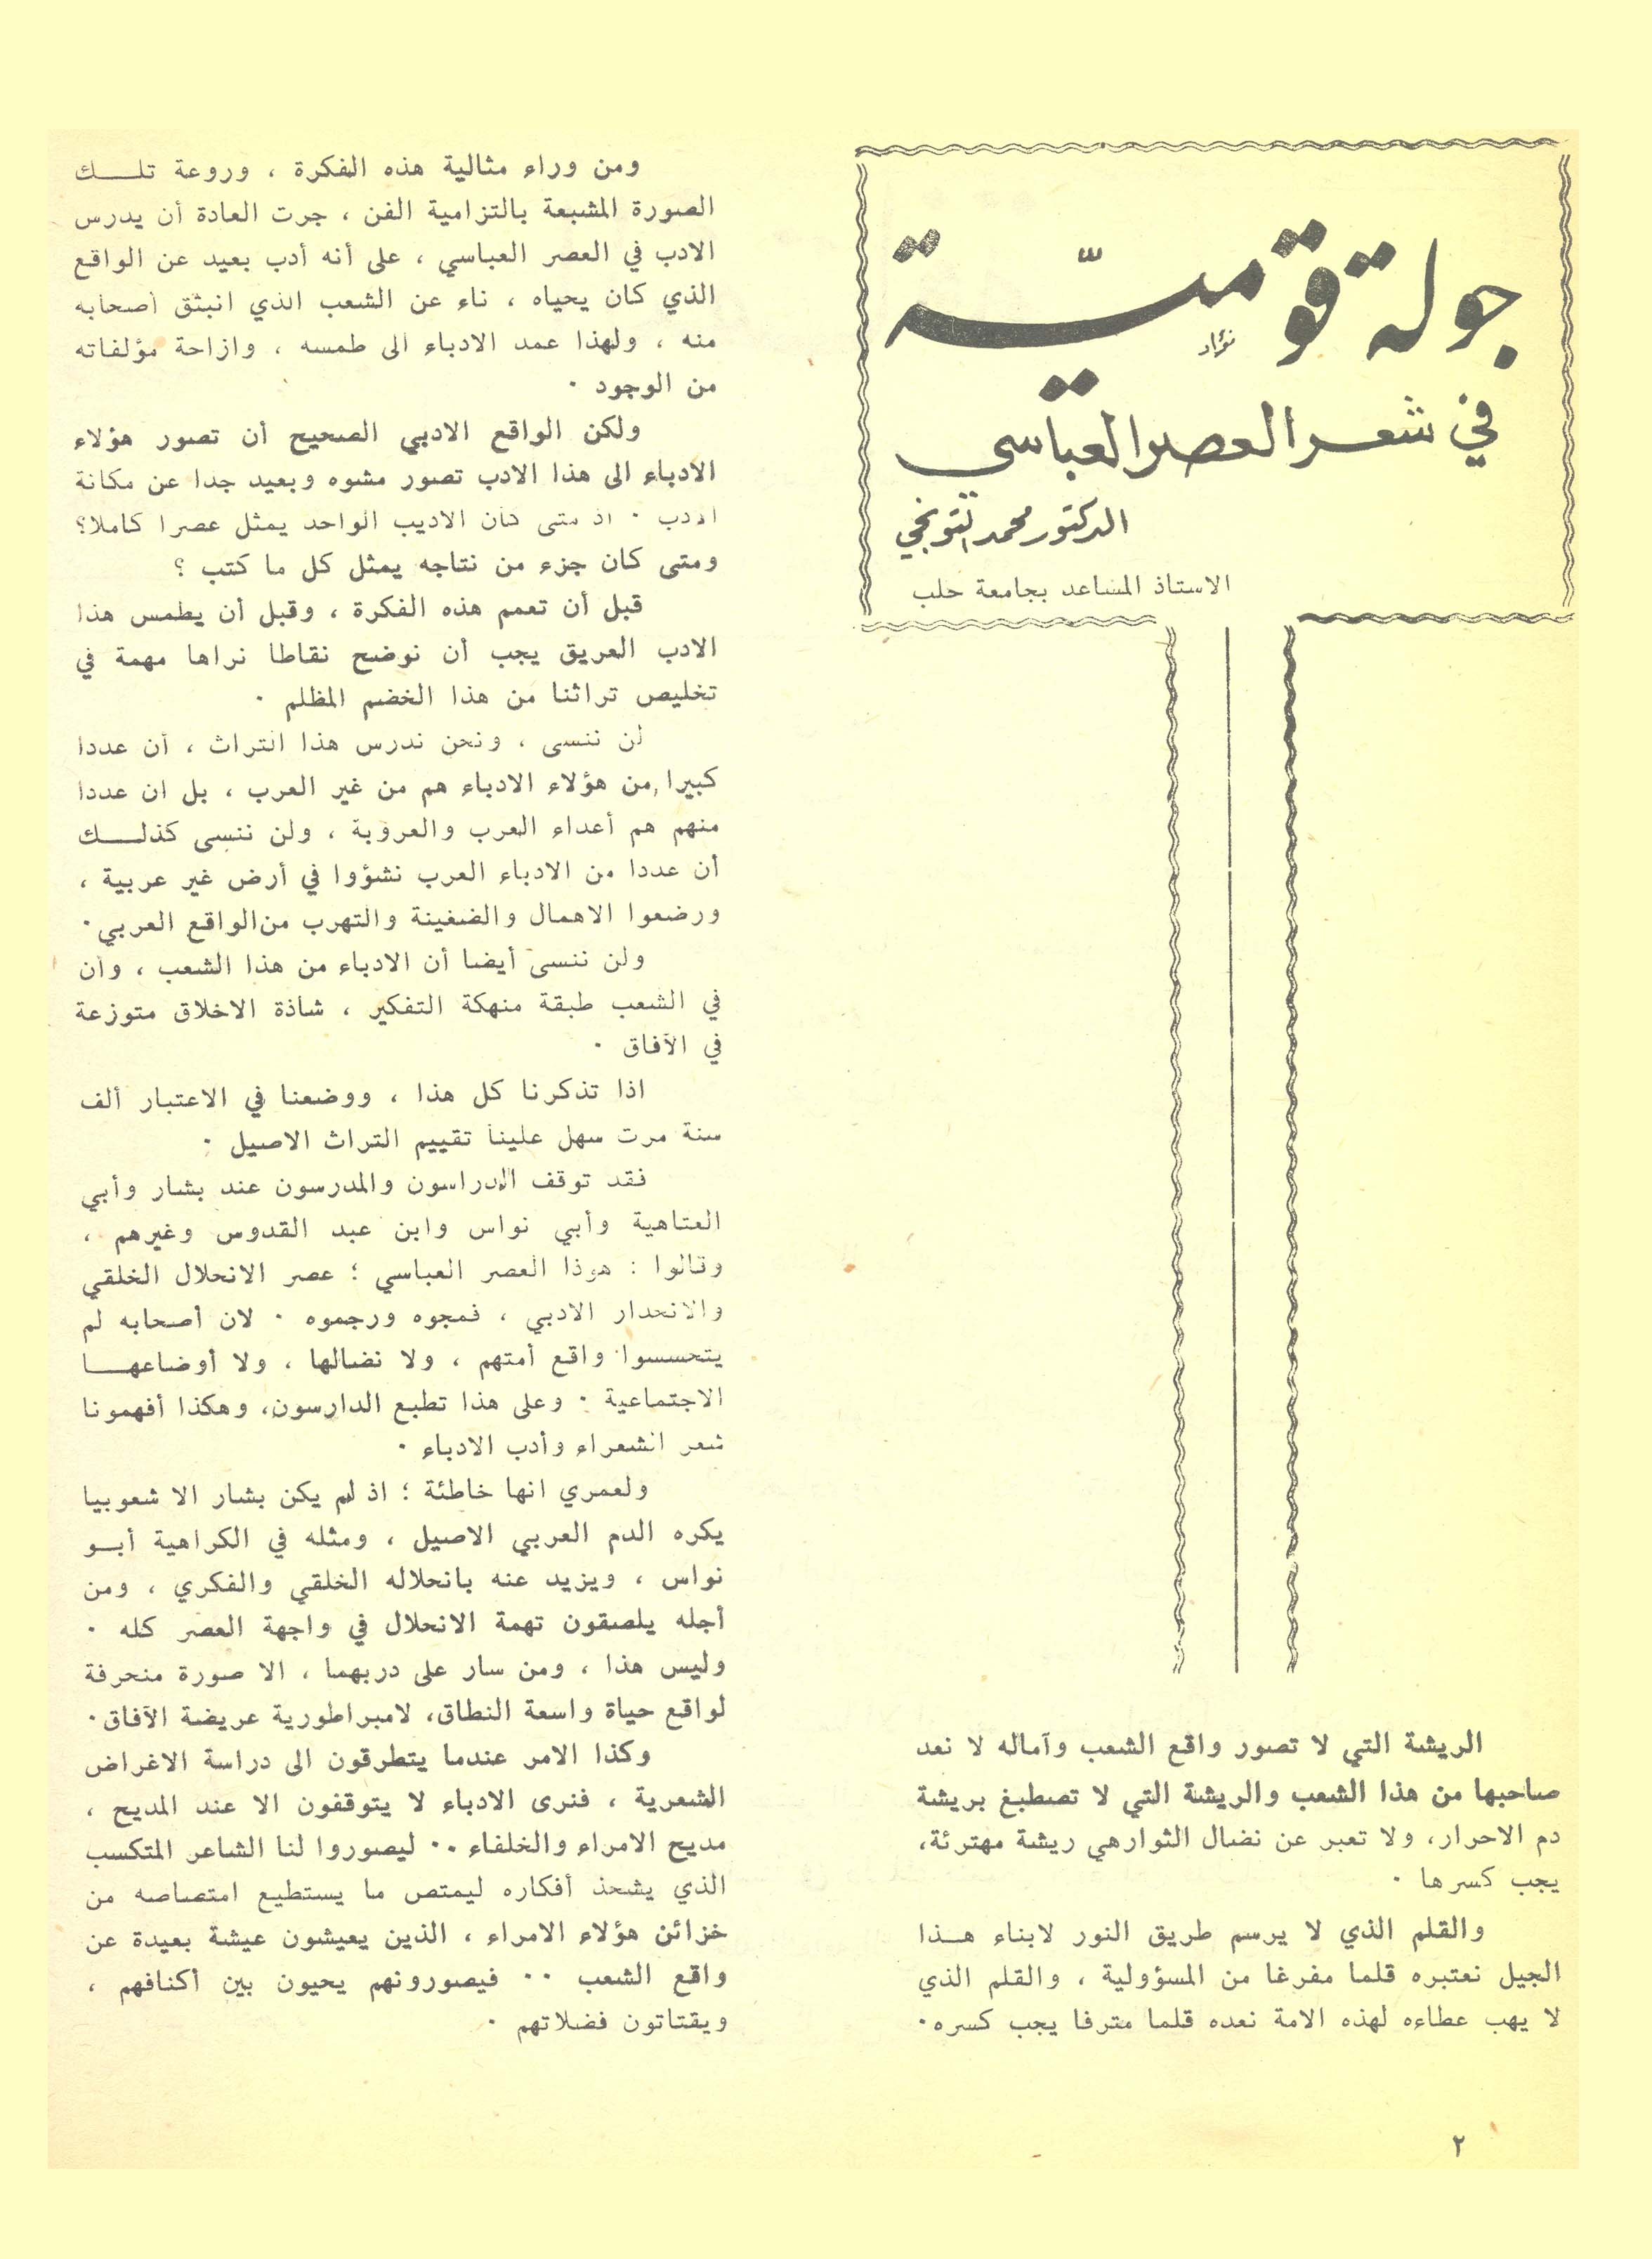 جولة قومية
في شعر العصر العباسي
الدكتور محمد التونجي
الاستاذ المساعد بجامعة حلب
الريشة التي لا تصور واقع الشعب وآماله لا نعد
صاحبها من هذا الشعب والريشة التي لا تصطبغ بريشة
دم الاحرار، ولا تعبر عن نضال الثوارهي ريشة مهترئة،
يجب كسرها ٠
والقلم الذي لا يرسم طريق النور لابناء هـذا
الجيل نعتبره قلما مفرغا من المسؤولية ، والقلم الذي
لا يهب عطاءه لهذه الامة نعده قلما مترفا يجب كسره٠
ومن وراء مثالية هذه الفكرة ، وروعة تلـــك
الصورة المشبعة بالتزامية الفن ، جرت العادة أن يدرس
الادب في العصر العباسي ، على أنه أدب بعيد عن الواقع
الذي كان يحياه ، ناء عن الشعب الذي انبثق أصحابه
منه ، ولهذا عمد الادباء الى طمسه ، وازاحة مؤلفاته
من الوجود ٠
ولكن الواقع الادبي الصحيح أن تصور هؤلاء
الادباء الى هذا الادب تصور مشوه وبعيد جدا عن مكانة
الادب ٠ اذ متى كان الاديب الواحد يمثل عصرا كاملا؟
ومتى كان جزء من نتاجه يمثل كل ما كتب ؟
قبل أن تعمم هذه الفكرة ، وقبل أن يطمس هذا
الادب العريق يجب أن نوضح نقاطا نراها مهمة في
تخليص تراثنا من هذا الخضم المظلم ٠
لن ننسى ، ونحن ندرس هذا التراث ، أن عددا
كبيرا من هؤلاء الادباء هم من غير العرب ، بل ان عددا
منهم هم أعداء العرب والعروبة ، ولن ننسى كذلـــك
أن عددا من الادباء العرب نشؤوا في أرض غير عربية ،
ورضعوا الاهمال والضغينة والتهرب من الواقع العربي٠
ولن ننسى أيضا أن الادباء من هذا الشعب ، وأن
في الشعب طبقة منهكة التفكير ، شاذة الاخلاق متوزعة
في الآفاق ٠
اذا تذكرنا كل هذا ، ووضعنا في الاعتبار ألف
سنة مرت سهل علينا تقييم التراث الاصيل ٠
فقد توقف الدراسون والمدرسون عند بشار وأبي
العتاهية وأبي نواس وابن عبد القدوس وغيرهم ،
وقالوا : هوذا العصر العباسي ؛ عصر الانحلال الخلقي
والانحدار الادبي ، فمجوه ورجموه ٠ لان أصحابه لم
يتحسسوا واقع أمتهم ، ولا نضالها ، ولا أوضاعهـــا
الاجتماعية ٠ وعلى هذا تطبع الدارسون، وهكذا أفهمونا
شعر الشعراء وأدب الادباء ٠
ولعمري انها خاطئة ؛ اذ لم يكن بشار الا شعوبيا
يكره الدم العربي الاصيل ، ومثله في الكراهية أبــو
نواس ، ويزيد عنه بانحلاله الخلقي والفكري ، ومن
أجله يلصقون تهمة الانحلال في واجهة العصر كله ٠
وليس هذا ، ومن سار على دربهما ، الا صورة منحرفة
لواقع حياة واسعة النطاق، لامبراطورية عريضة الآفاق٠
وكذا الامر عندما يتطرقون الى دراسة الاغراض
الشعرية ، فنرى الادباء لا يتوقفون الا عند المديح ،
مديح الامراء والخلفاء ٠٠ ليصوروا لنا الشاعر المتكسب
الذي يشحذ أفكاره ليمتص ما يستطيع امتصاصه من
خزائن هؤلاء الامراء ، الذين يعيشون عيشة بعيدة عن
واقع الشعب ٠٠ فيصورونهم يحيون بين أكنافهم ،
ويقتاتون فضلاتهم ٠
٢